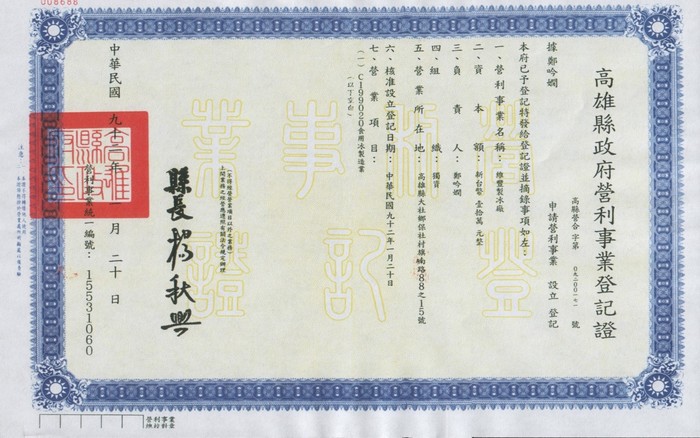 高雄縣政府營利事業登記證
高縣營合字第 號
據鄭吟嫻 申請營利事業 設立 登記
本府已予登記特發給登記證並摘錄事項如左：
一、營利事業名稱：維豐製冰廠
二、資本額：新台幣 壹拾萬 元整
三、負責人：鄭吟嫻
四、組織：獨資
五、營業所在地：高雄縣大社鄉保社村旗楠路88之15號
六、核准設立登記日期：中華民國九十二年一月二十日
七、營業項目：
(一) C199020食用冰製造業
(以下空白)
營利事業登記證
(不得經營登記項目以外之業務)
縣長 楊秋興
中華民國 九十二年 一月 二十日
營利事業統一編號：15531060
高雄縣政府印
注意：
008688